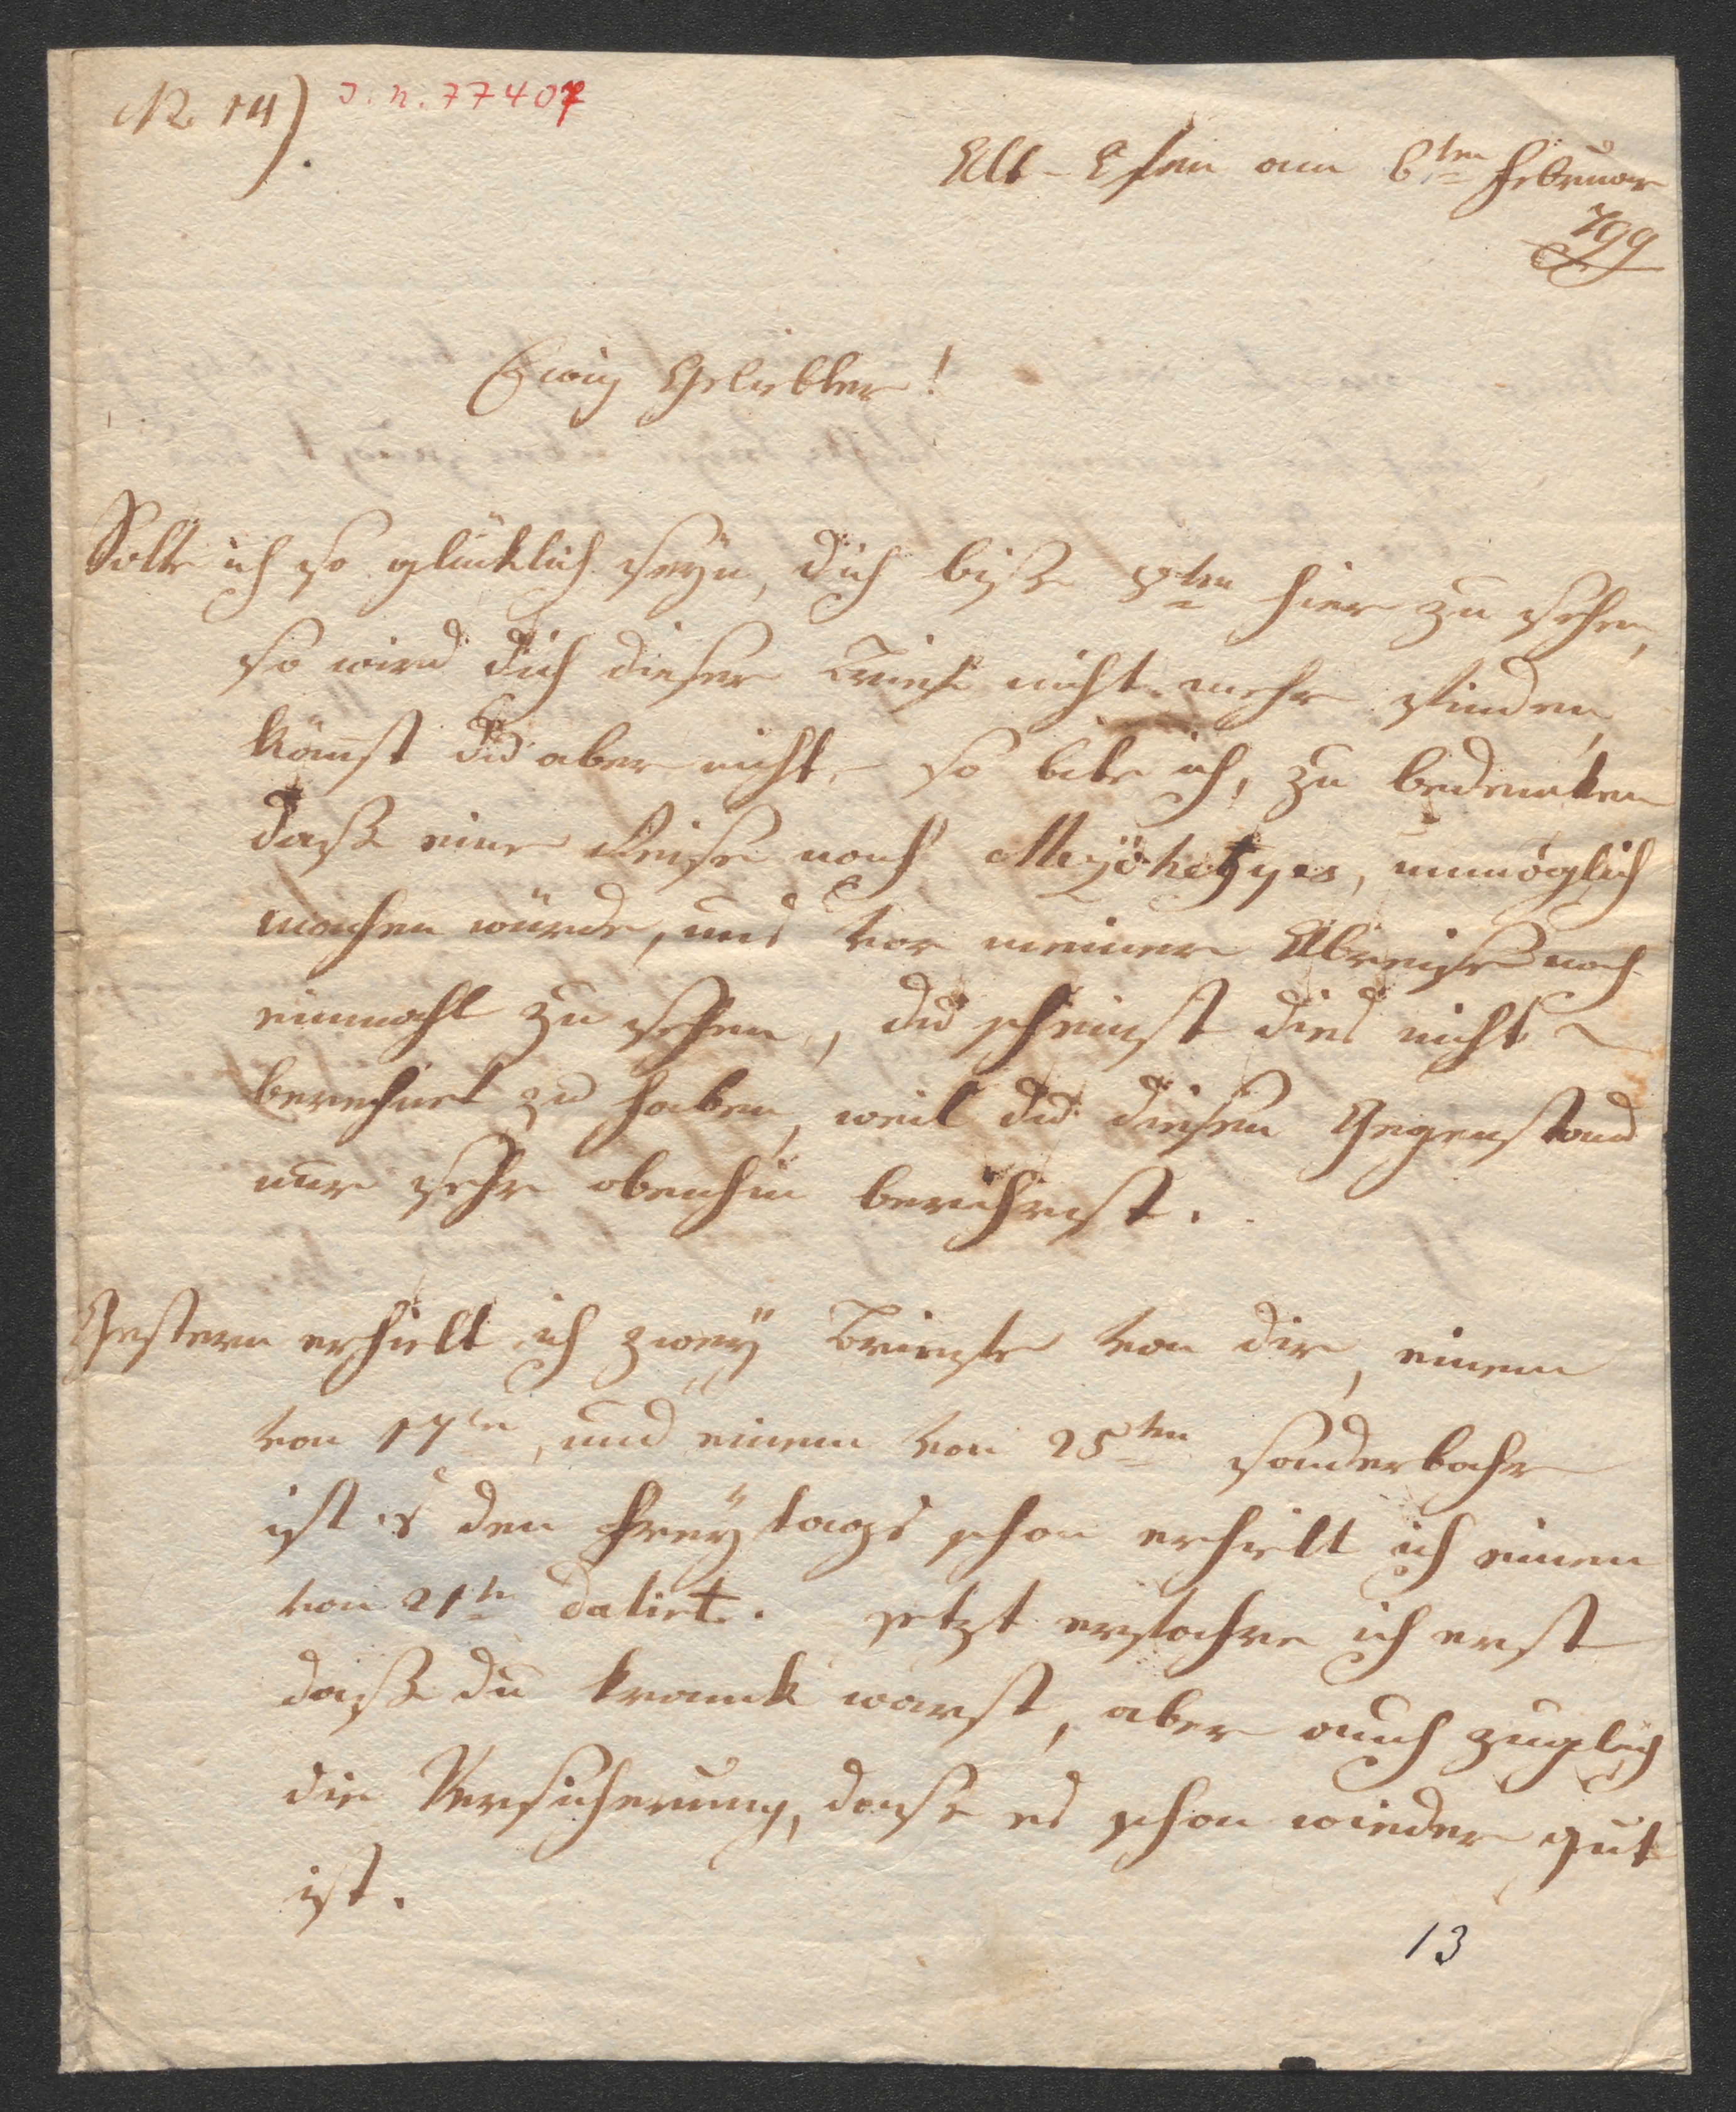 N. 14) J. N. 77407
Alt-Ofen am 6ten Februar
799
Ewig Geliebter!
Solte ich so glücklich seyn, dich biß 8ten hier zu sehen,
so wird dich dieser Brief nicht mehr finden,
kömst du aber nicht, so bite ich, zu bedencken
daß eine Reise nach Mezöhegyes, unmöglich
machen würde, uns vor meiner Abreise noch
einmahl zu sehen, du scheinst dies nicht
berechnet zu haben, weil du diesen Gegenstand
nur sehr obenhin berührest.
Gestern erhielt ich zwey Briefe von dir, einem
von 17ten, und einem von 25ten sonderbahr
ist es den Freytags schon erhielt ich einen
von 21ten datirt. jetzt erfahre ich erst
daß du kranck warst, aber auch zugleich
die Versicherung, daß es schon wieder gut
ist.
13